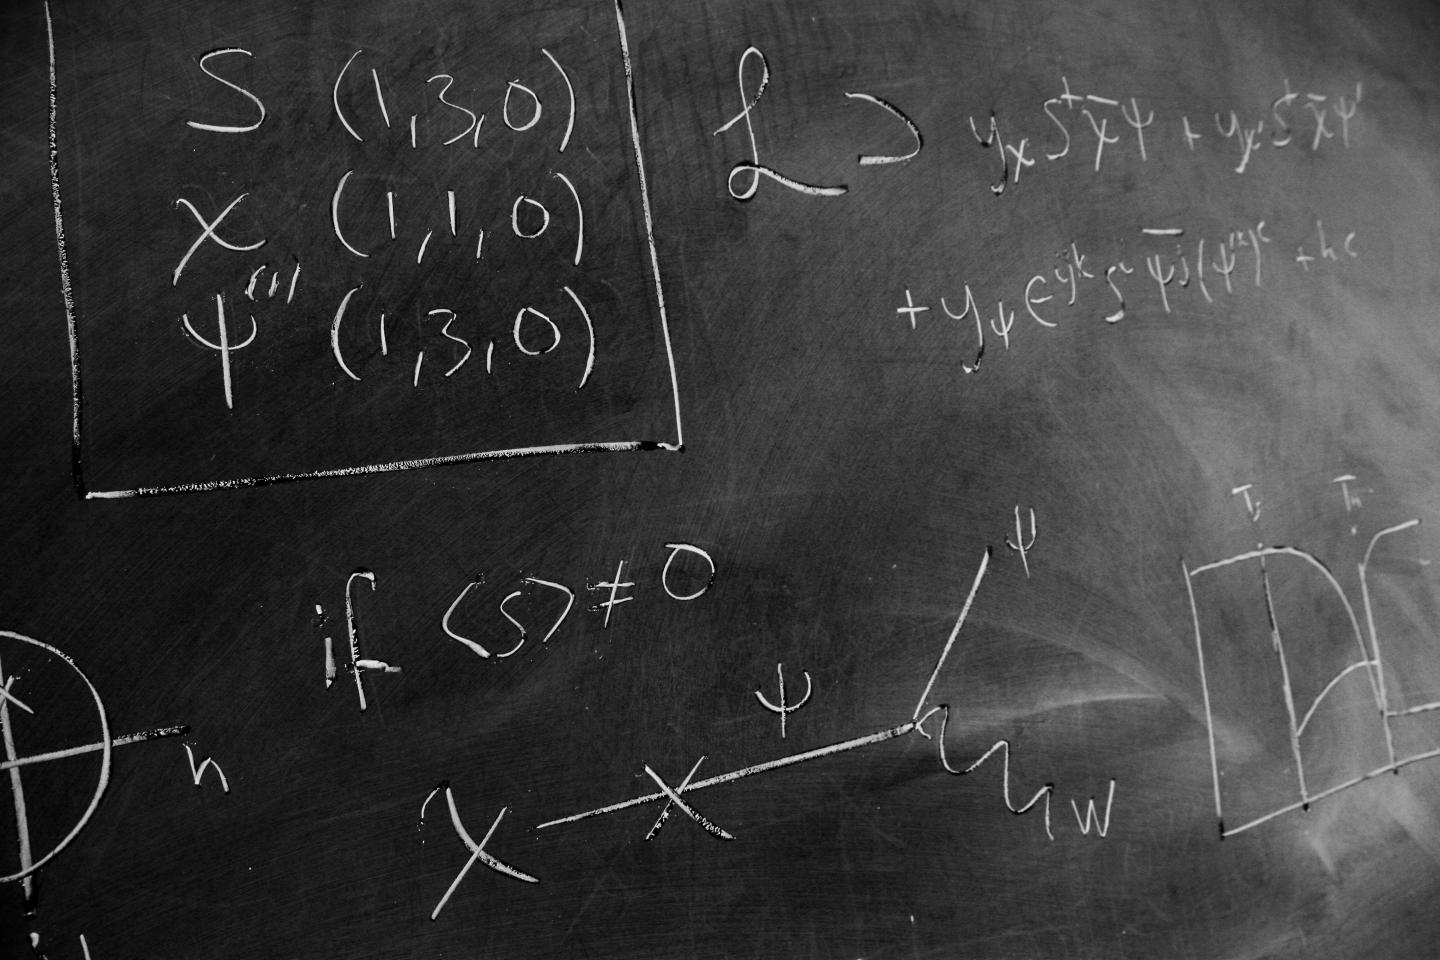 S (1,3,0)
χ (1,1,0)
ψ⁽′⁾ (1,3,0)
ℒ ⊃ y_χ S† χ̄ ψ + y_χ' S† χ̄ ψ'
+ y_ψ ϵ^{ijk} S^i ψ̄^j (ψ'^k)^c + hc
if ⟨S⟩ ≠ 0
ψ
ψ
χ
W
h